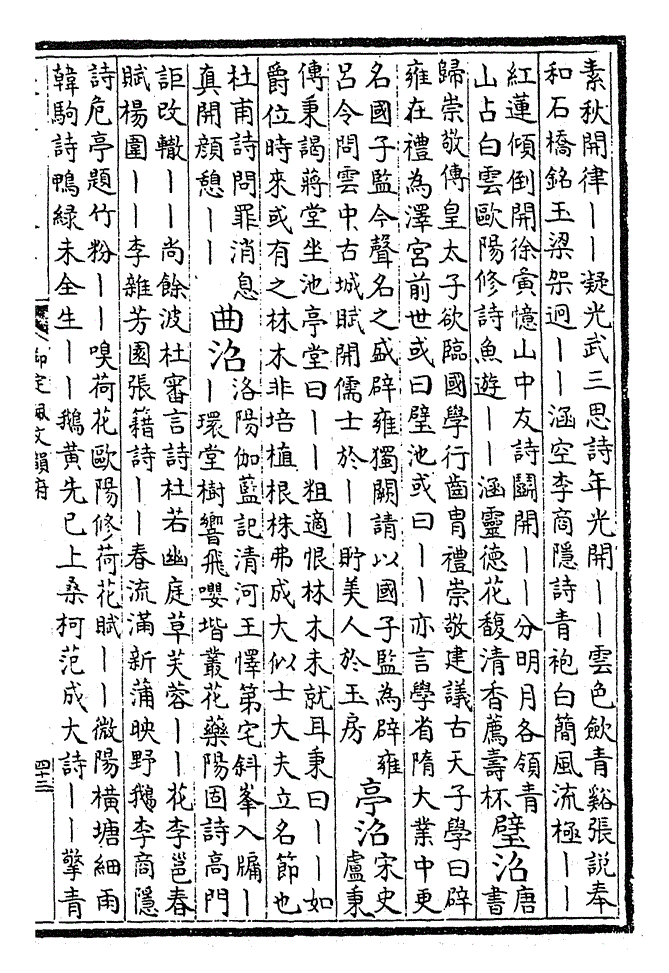 素秋開律丨丨凝光武三思詩年光開丨丨雲色歛青谿張説奉
和石橋銘玉梁架迥丨丨涵空李商隱詩青袍白簡風流極丨丨
紅蓮傾倒開徐寅憶山中友詩闢開丨丨分明月各領青
山占白雲歐陽修詩魚遊丨丨涵靈德花馥清香薦壽杯
璧沼
唐
書
歸崇敬傳皇太子欲臨國學行齒胄禮崇敬建議古天子學曰辟
雍在禮為澤宮前世或曰璧池或曰丨丨亦言學省隋大業中更
名國子監今聲名之盛辟雍獨闕請以國子監為辟雍
吕令問雲中古城賦開儒士於丨丨貯美人於玉房
亭沼
宋史
盧秉
傳秉謁蔣堂坐池亭堂曰丨丨粗適恨林木未就耳秉曰丨丨如
爵位時來或有之林木非培植根株弗成大似士大夫立名節也
杜甫詩問罪消息
真開顔憩丨丨
曲沼
洛陽伽藍記清河王懌第宅斜峯入牖丨
丨環堂樹響飛嚶堦叢花藥陽固詩高門
詎改轍丨丨尚餘波杜審言詩杜若幽庭草芙蓉丨丨花李邕春
賦楊園丨丨李雜芳園張籍詩丨丨春流滿新蒲映野鵝李商隱
詩危亭題竹粉丨丨嗅荷花歐陽修荷花賦丨丨微陽橫塘細雨
韓駒詩鴨綠未全生丨丨鵝黄先已上桑柯范成大詩丨丨擎青
御定佩文韻府
四十三